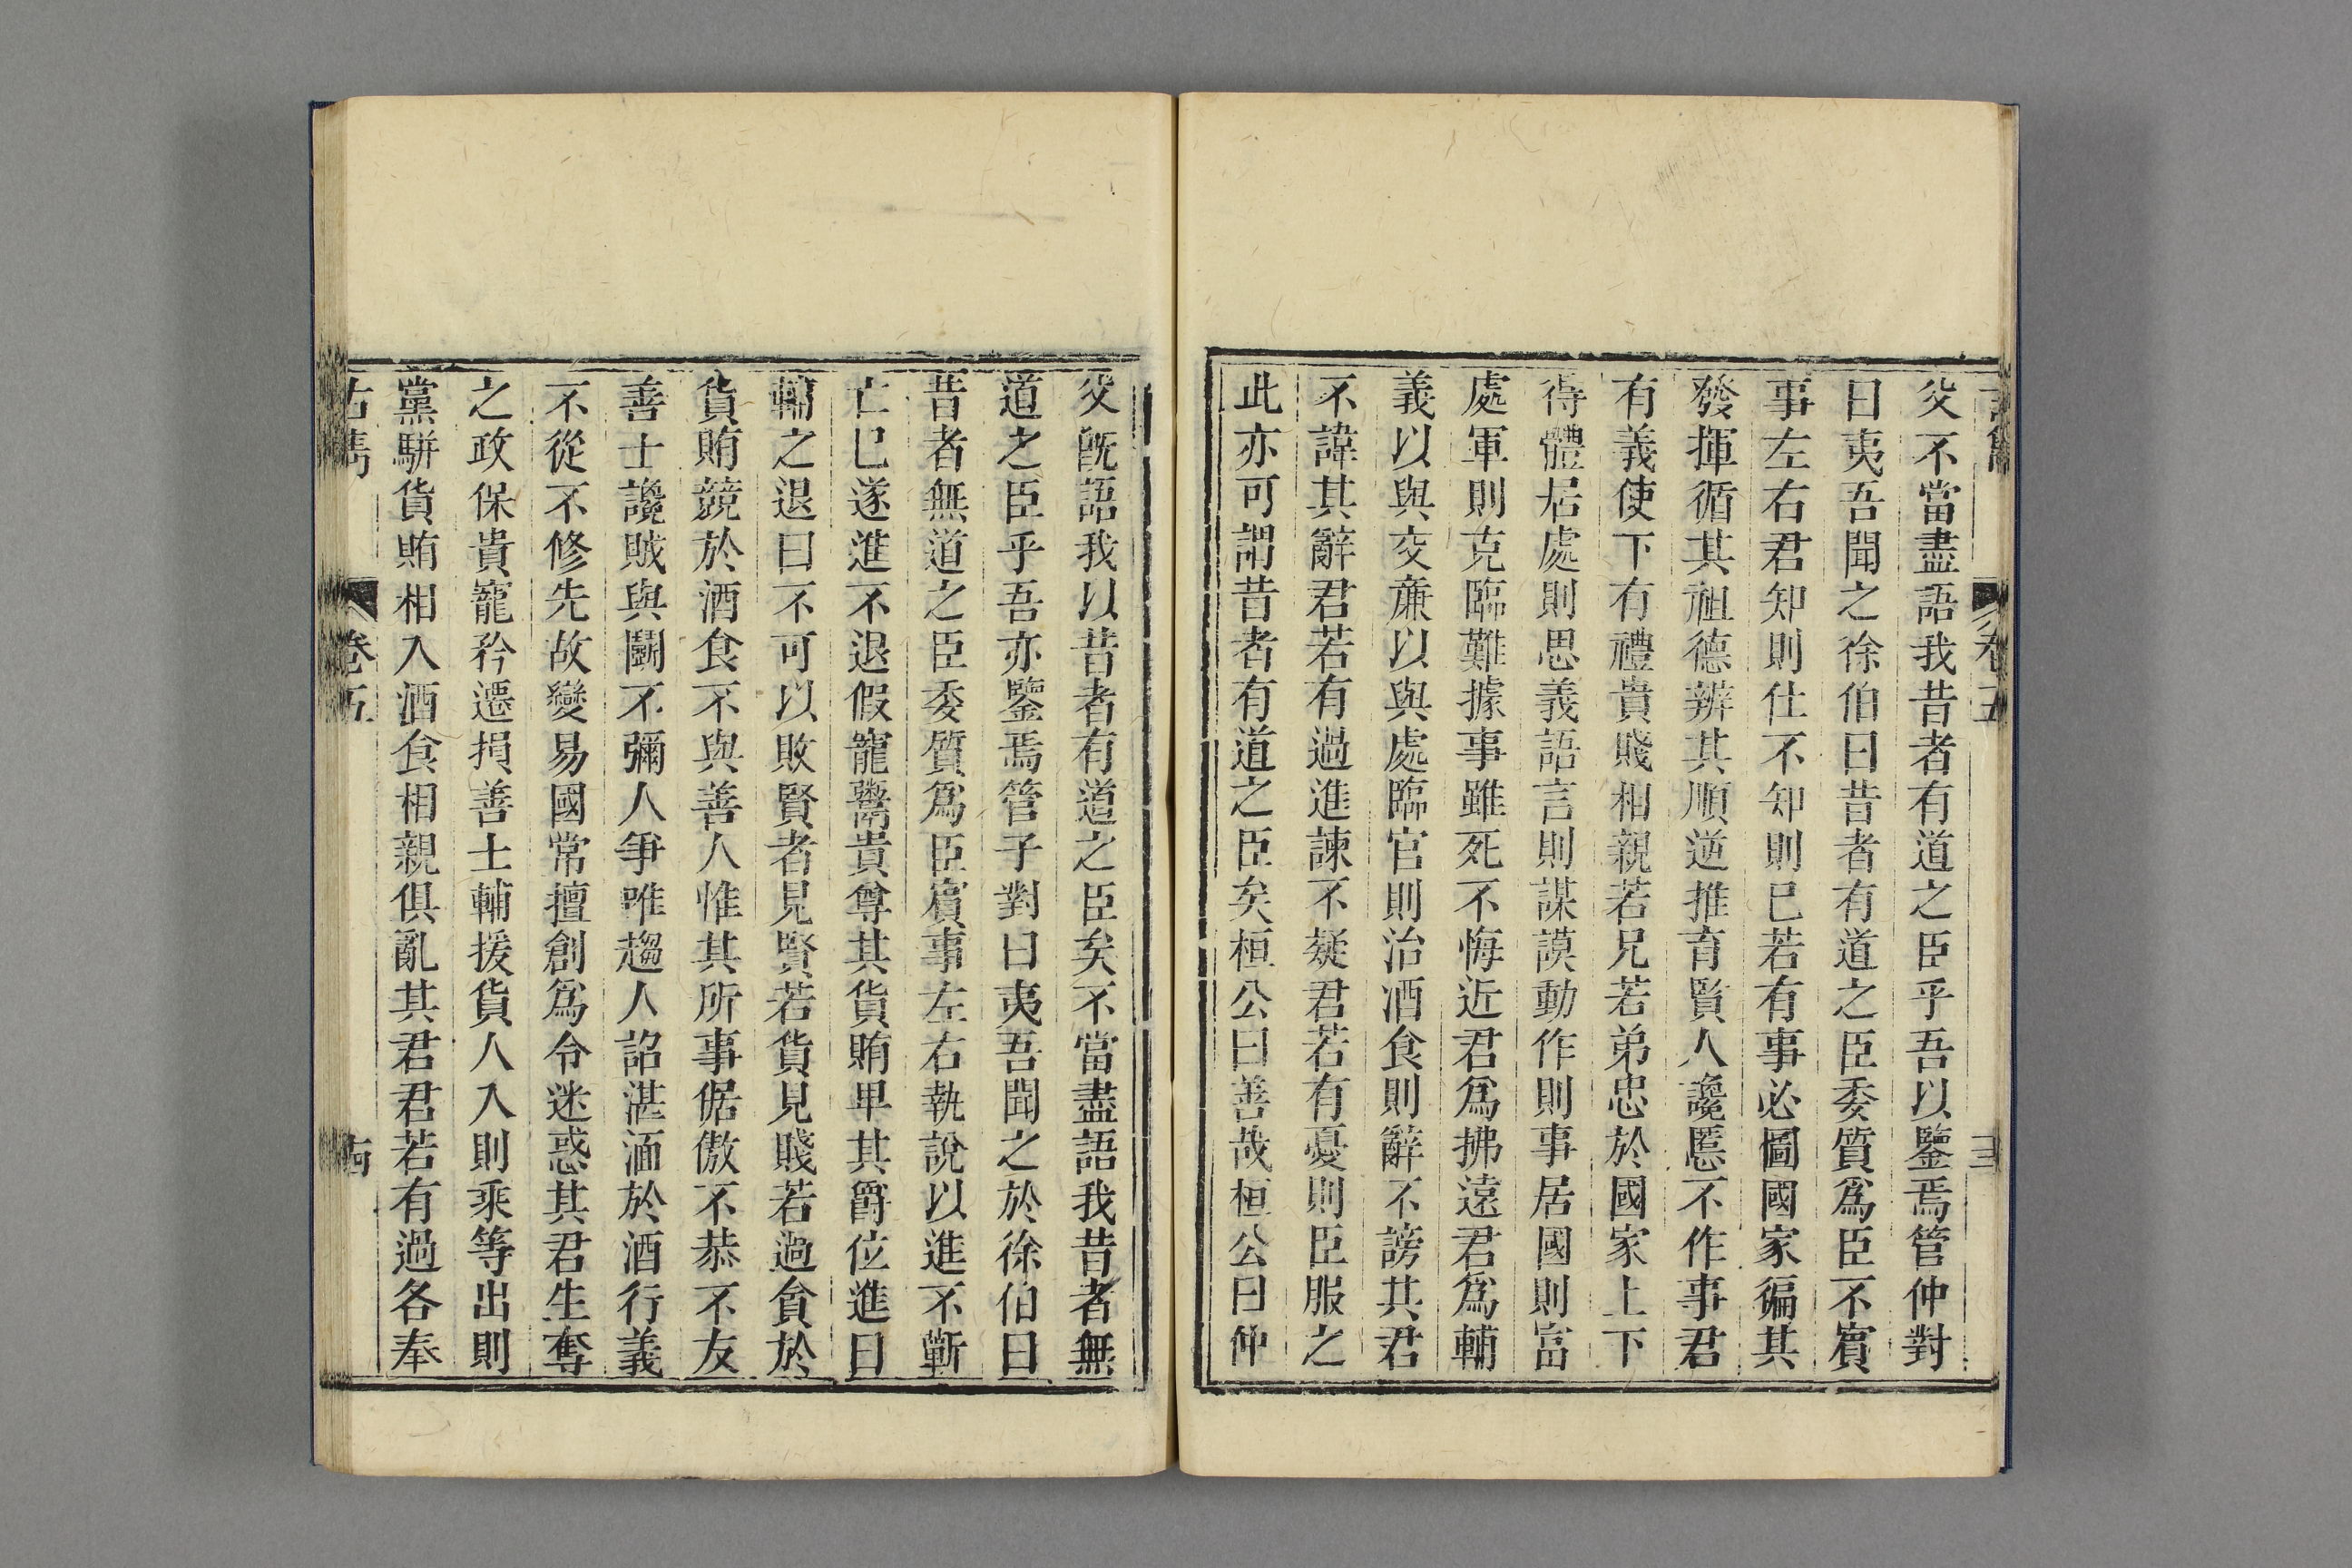 卷五
父不當盡語我昔者有道之臣乎吾以鑒焉管仲對
曰夷吾聞之徐伯曰昔者有道之臣委質爲臣不賓
事左右君知則仕不知則已若有事必圖國家徧其
發揮循其祖德辨其順逆推育賢人讒慝不作事君
有義使下有禮貴賤相親若兄若弟忠於國家上下
得體居處則思義語言則謀謨動作則事居國則富
處軍則克臨難據事雖死不悔近君爲拂遠君爲輔
義以與交廉以與處臨官則治酒食則辭不謗其君
不諱其辭君若有過進諫不疑君若有憂則臣服之
此亦可謂昔者有道之臣矣桓公曰善哉桓公曰仲
父旣語我以昔者有道之臣矣不當盡語我昔者無
道之臣乎吾亦鑒焉管子對曰夷吾聞之於徐伯曰
昔者無道之臣委質爲臣賓事左右執說以進不蘄
亡巳遂進不退假寵鬻貴尊其貨賄卑其爵位進曰
輔之退曰不可以敗賢者見賢若貨見賤若過貪於
貨賄競於酒食不與善人惟其所事倨傲不恭不友
善士讒賊與鬬不彌人爭唯趨人詔湛湎於酒行義
不從不修先故變易國常擅創爲令迷惑其君生奪
之政保貴寵矜遷損善士輔援貨人入則乘等出則
黨駢貨賄相入酒食相親俱亂其君君若有過各奉
卷五